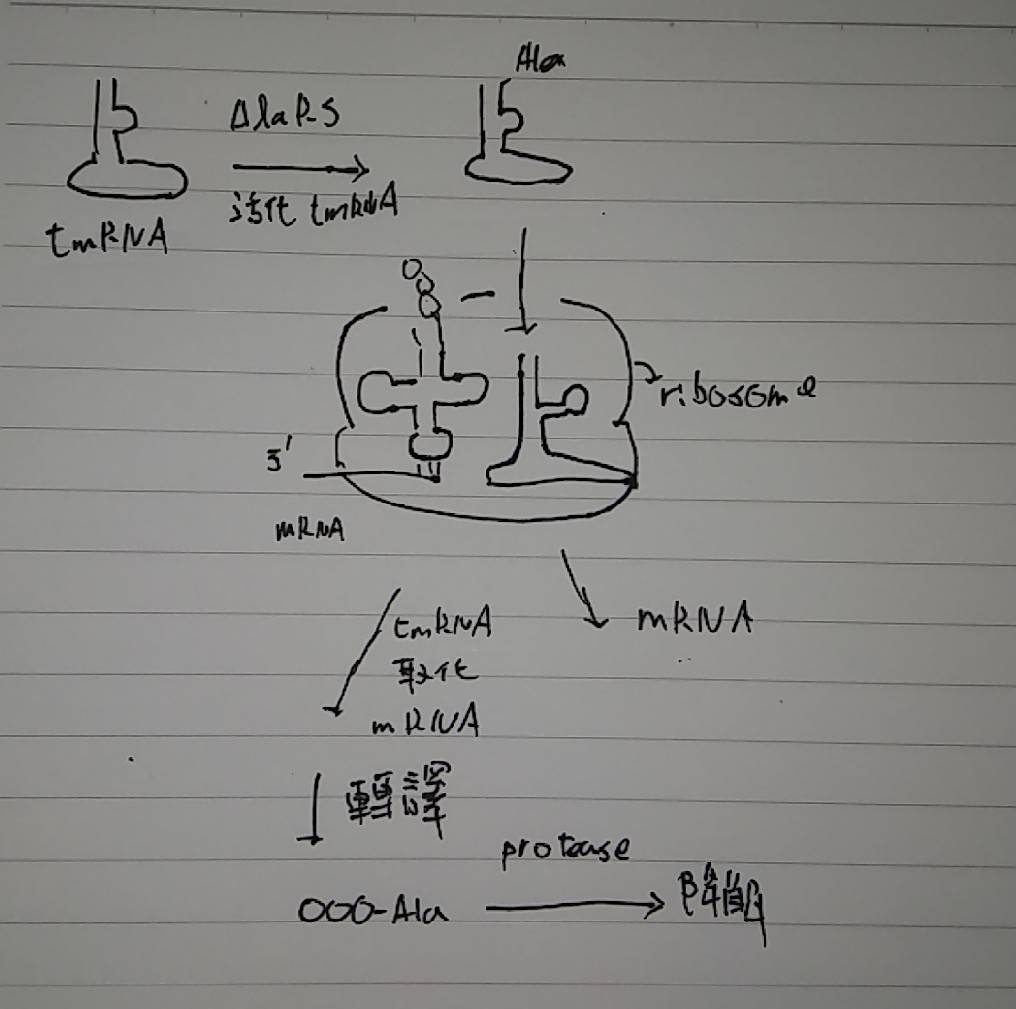 Ala
AlaRS
活化 tmRNA
tmRNA
ribosome
5'
mRNA
tmRNA
取代
mRNA
mRNA
轉譯
protease
OOO-Ala
降解